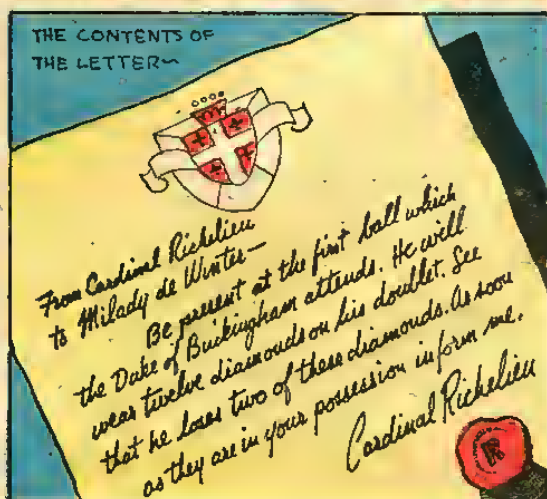 THE CONTENTS OF
THE LETTER~
From Cardinal Richelieu
to Milady de Winter—
Be present at the first ball which
the Duke of Buckingham attends. He will
wear twelve diamonds on his doublet. See
that he loses two of these diamonds. As soon
as they are in your possession inform me.
Cardinal Richelieu